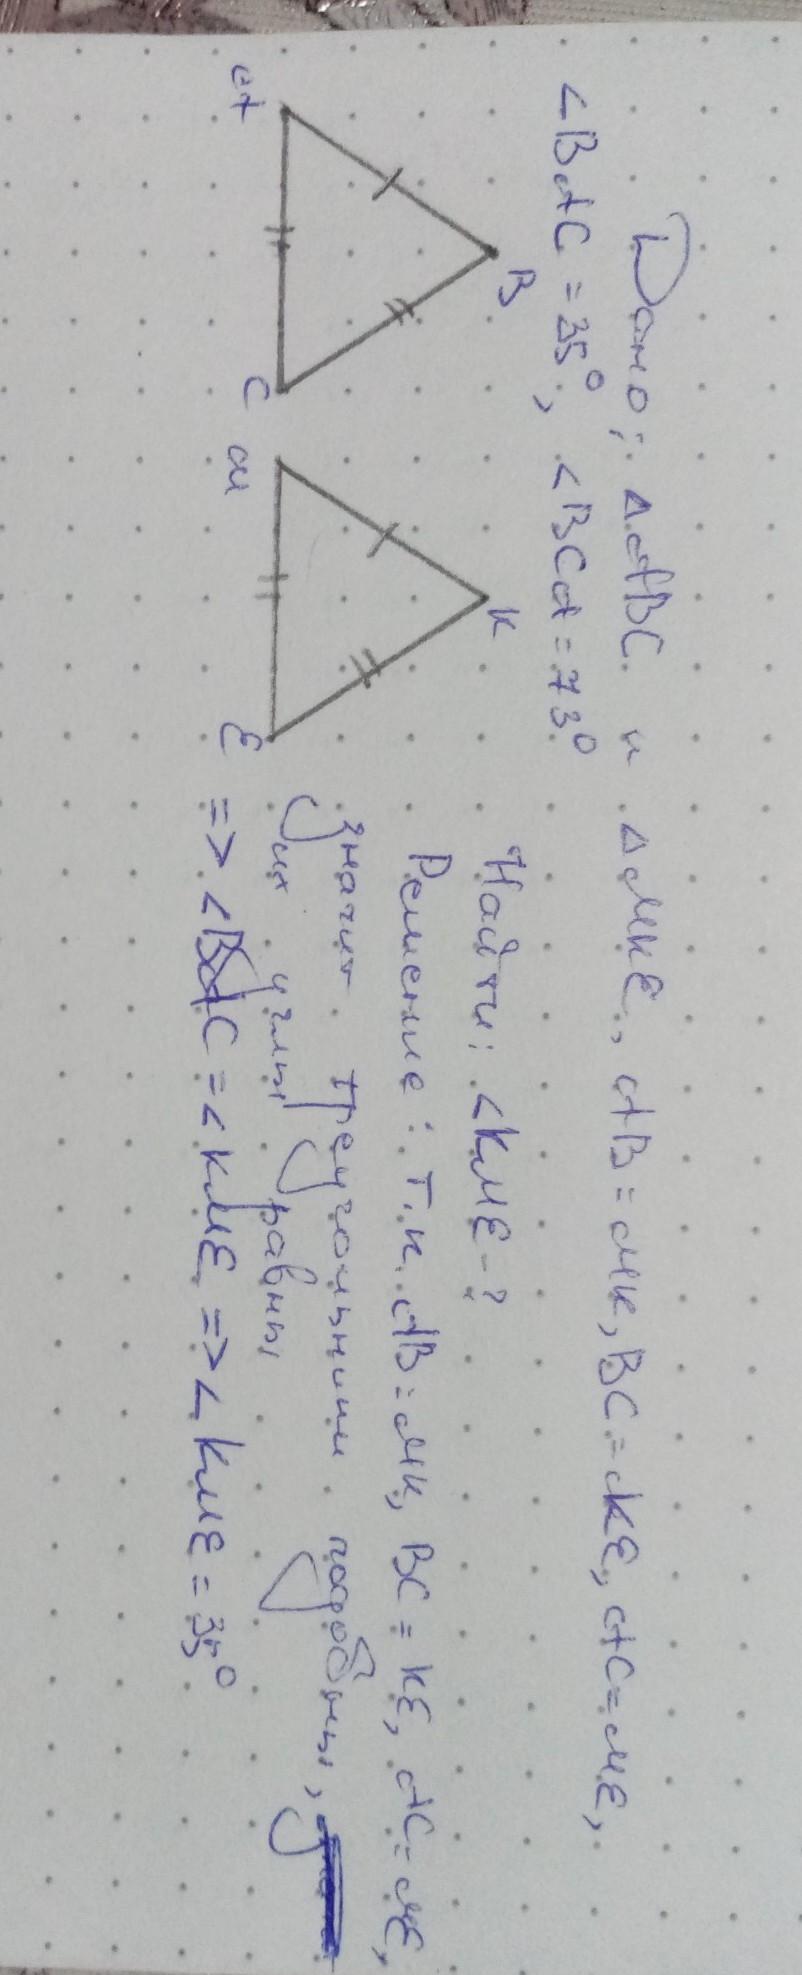 Дано: ΔABC и ΔMKE, AB=MK, BC=KE, AC=ME,
<BAC=35°, <BCA=73°
B
K
A
C
M
E
Найти: <KME-?
Решение: т.к. AB=MK, BC=KE, AC=ME,
значит треугольники подобны,
и их углы равны,
=> <BAC=<KME => <KME=35°